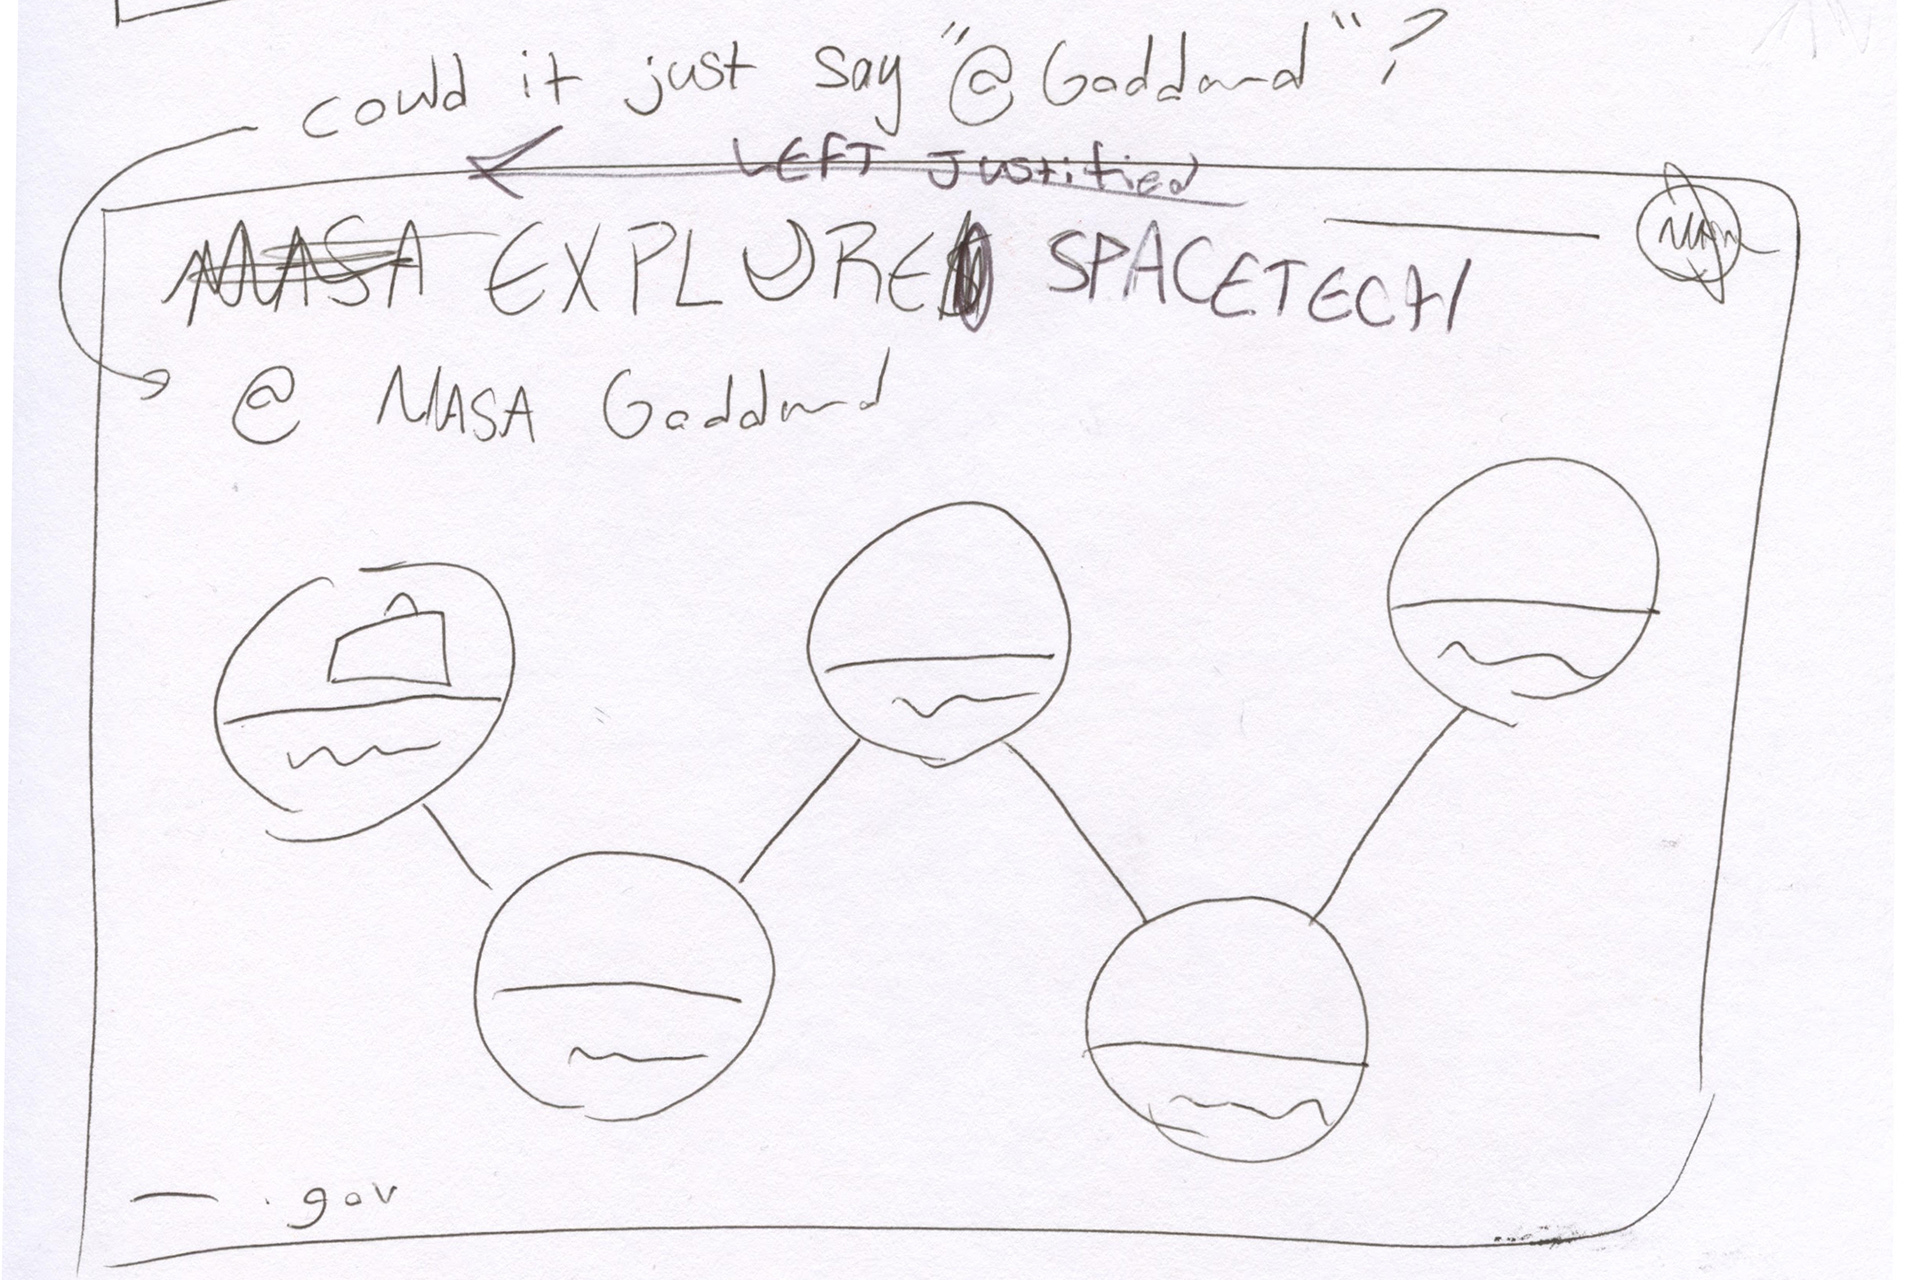 could it just say "@Goddard"?
LEFT Justified
NASA EXPLORE SPACETECH
NASA
@ NASA Goddard
.gov